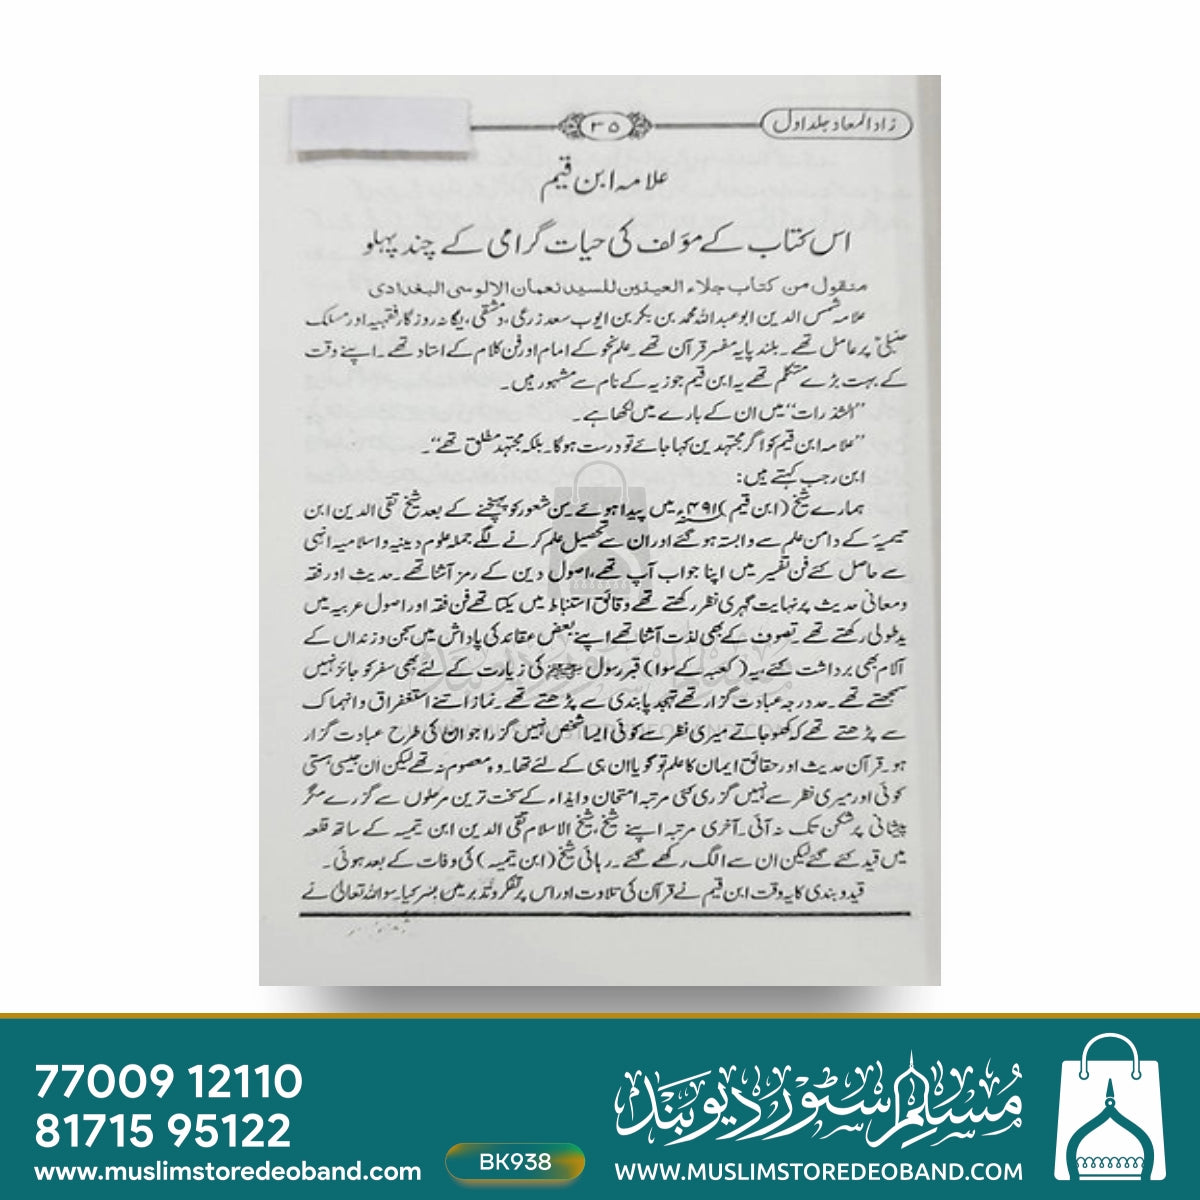 زاد المعاد جلد اول
۳۵
علامہ ابن قیم
اس کتاب کے مؤلف کی حیات گرامی کے چند پہلو
منقول من کتاب جلاء العینین للسید نعمان الالوسی البغدادی
علامہ شمس الدین ابو عبداللہ محمد بن بکر بن ایوب سعد زرعی، دمشقی، یگانہ روزگار فقیہہ اور مسلک
حنبلیؒ پر عامل تھے۔ بلند پایہ مفسر قرآن تھے۔ علم نحو کے امام اور فن کلام کے استاد تھے۔ اپنے وقت
کے بہت بڑے متکلم تھے یہ ابن قیم جوزیہ کے نام سے مشہور ہیں۔
"الشذرات" میں ان کے بارے میں لکھا ہے۔
"علامہ ابن قیم کو اگر مجتہدین کہا جائے تو درست ہوگا۔ بلکہ مجتہد مطلق تھے"۔
ابن رجب کہتے ہیں:
ہمارے شیخ (ابن قیم) ۴۹۱ء میں پیدا ہوئے سن شعور کو پہنچنے کے بعد شیخ تقی الدین ابن
تیمیہؒ کے دامن علم سے وابستہ ہو گئے اور ان سے تحصیل علم کرنے لگے جملہ علوم دینیہ و اسلامیہ انہی
سے حاصل کئے فن تفسیر میں اپنا جواب آپ تھے، اصول دین کے رمز آشنا تھے۔ حدیث اور فقہ
و معانی حدیث پر نہایت گہری نظر رکھتے تھے دقائق استنباط میں یکتا تھے فن فقہ اور اصول عربیہ میں
ید طولی رکھتے تھے۔ تصوف کے بھی لذت آشنا تھے اپنے بعض عقائد کی پاداش میں سجن و زنداں کے
آلام بھی برداشت کئے، یہ (کعبہ کے سوا) قبر رسول ﷺ کی زیارت کے لئے بھی سفر کو جائز نہیں
سمجھتے تھے۔ حد درجہ عبادت گزار تھے تہجد پابندی سے پڑھتے تھے۔ نماز اتنے استغفراق و انہماک
سے پڑھتے تھے کہ کھو جاتے میری نظر سے کوئی ایسا شخص نہیں گزرا جو ان کی طرح عبادت گزار
ہو۔ قرآن حدیث اور حقائق ایمان کا علم تو گویا ان ہی کے لئے تھا۔ وہ معصوم نہ تھے لیکن ان جیسی ہستی
کوئی اور میری نظر سے نہیں گزری کئی مرتبہ امتحان و ایذاء کے سخت ترین مرحلوں سے گزرے مگر
پیشانی پر شکن تک نہ آئی۔ آخری مرتبہ اپنے شیخ، شیخ الاسلام تقی الدین ابن تیمیہ کے ساتھ قلعہ
میں قید کئے گئے لیکن ان سے الگ رکھے گئے۔ رہائی شیخ (ابن تیمیہ) کی وفات کے بعد ہوئی۔
قید و بندی کا یہ وقت ابن قیم نے قرآن کی تلاوت اور اس پر تفکر و تدبر میں بسر کیا۔ سو اللہ تعالیٰ نے
77009 12110
81715 95122
www.muslimstoredeoband.com
BK938
مسلم سٹور دیوبند
WWW.MUSLIMSTOREDEOBAND.COM